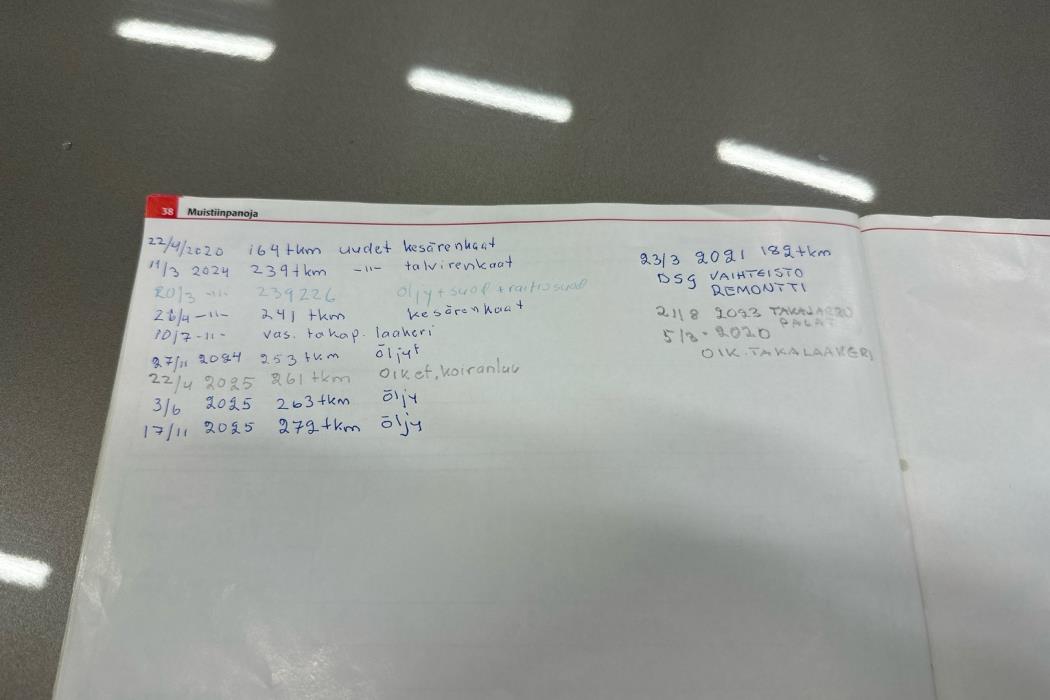 38 Muistiinpanoja
22/4/2020 164 tkm uudet kesärenkaat
11/3 2024 239 tkm -11- talvirenkaat
20/3 -11- 239226 öljy + suod + raitissuod
28/4 -11- 241 tkm kesärenkaat
10/7 -11- vas. takap. laakeri
27/11 2024 253 tkm öljyt
22/4 2025 261 tkm oik et. koiranluu
3/6 2025 263 tkm öljy
17/11 2025 272 tkm öljy
23/3 2021 182 tkm
DSG VAIHTEISTO
REMONTTI
21/8 2023 TAKAJARRU
PALAT
5/3 - 2020
OIK. TAKALAAKERI